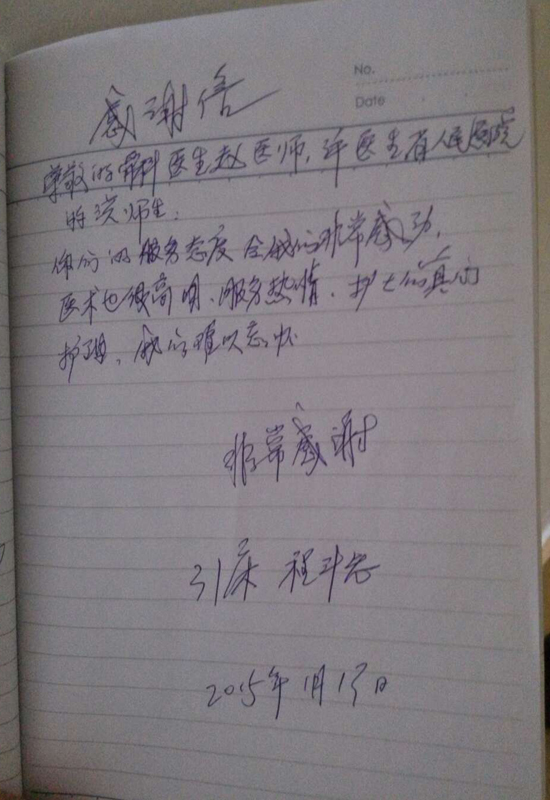 No.
Date
感谢信
尊敬的骨科医生赵医师,许医生省人民医院
的护师生:
你们的服务态度令我们非常感动,
医术也很高明、服务热情、护士们真的
护理,我们难以忘怀
非常感谢
31床 程斗忠
2015年1月13日